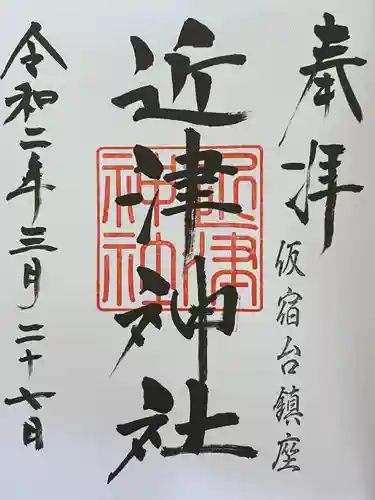 奉拝
仮宿台鎮座
近津神社
近津神社
令和二年三月二十七日